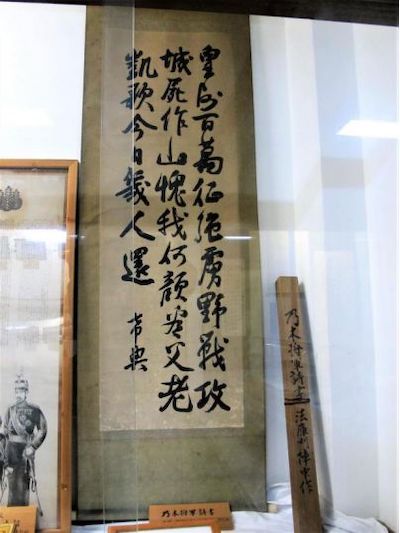 皇師百萬征強虜野戰攻
城屍作山愧我何顔看父老
凱歌今日幾人還
希典
乃木将軍詩書
法庫門陣中作
乃木将軍詩書